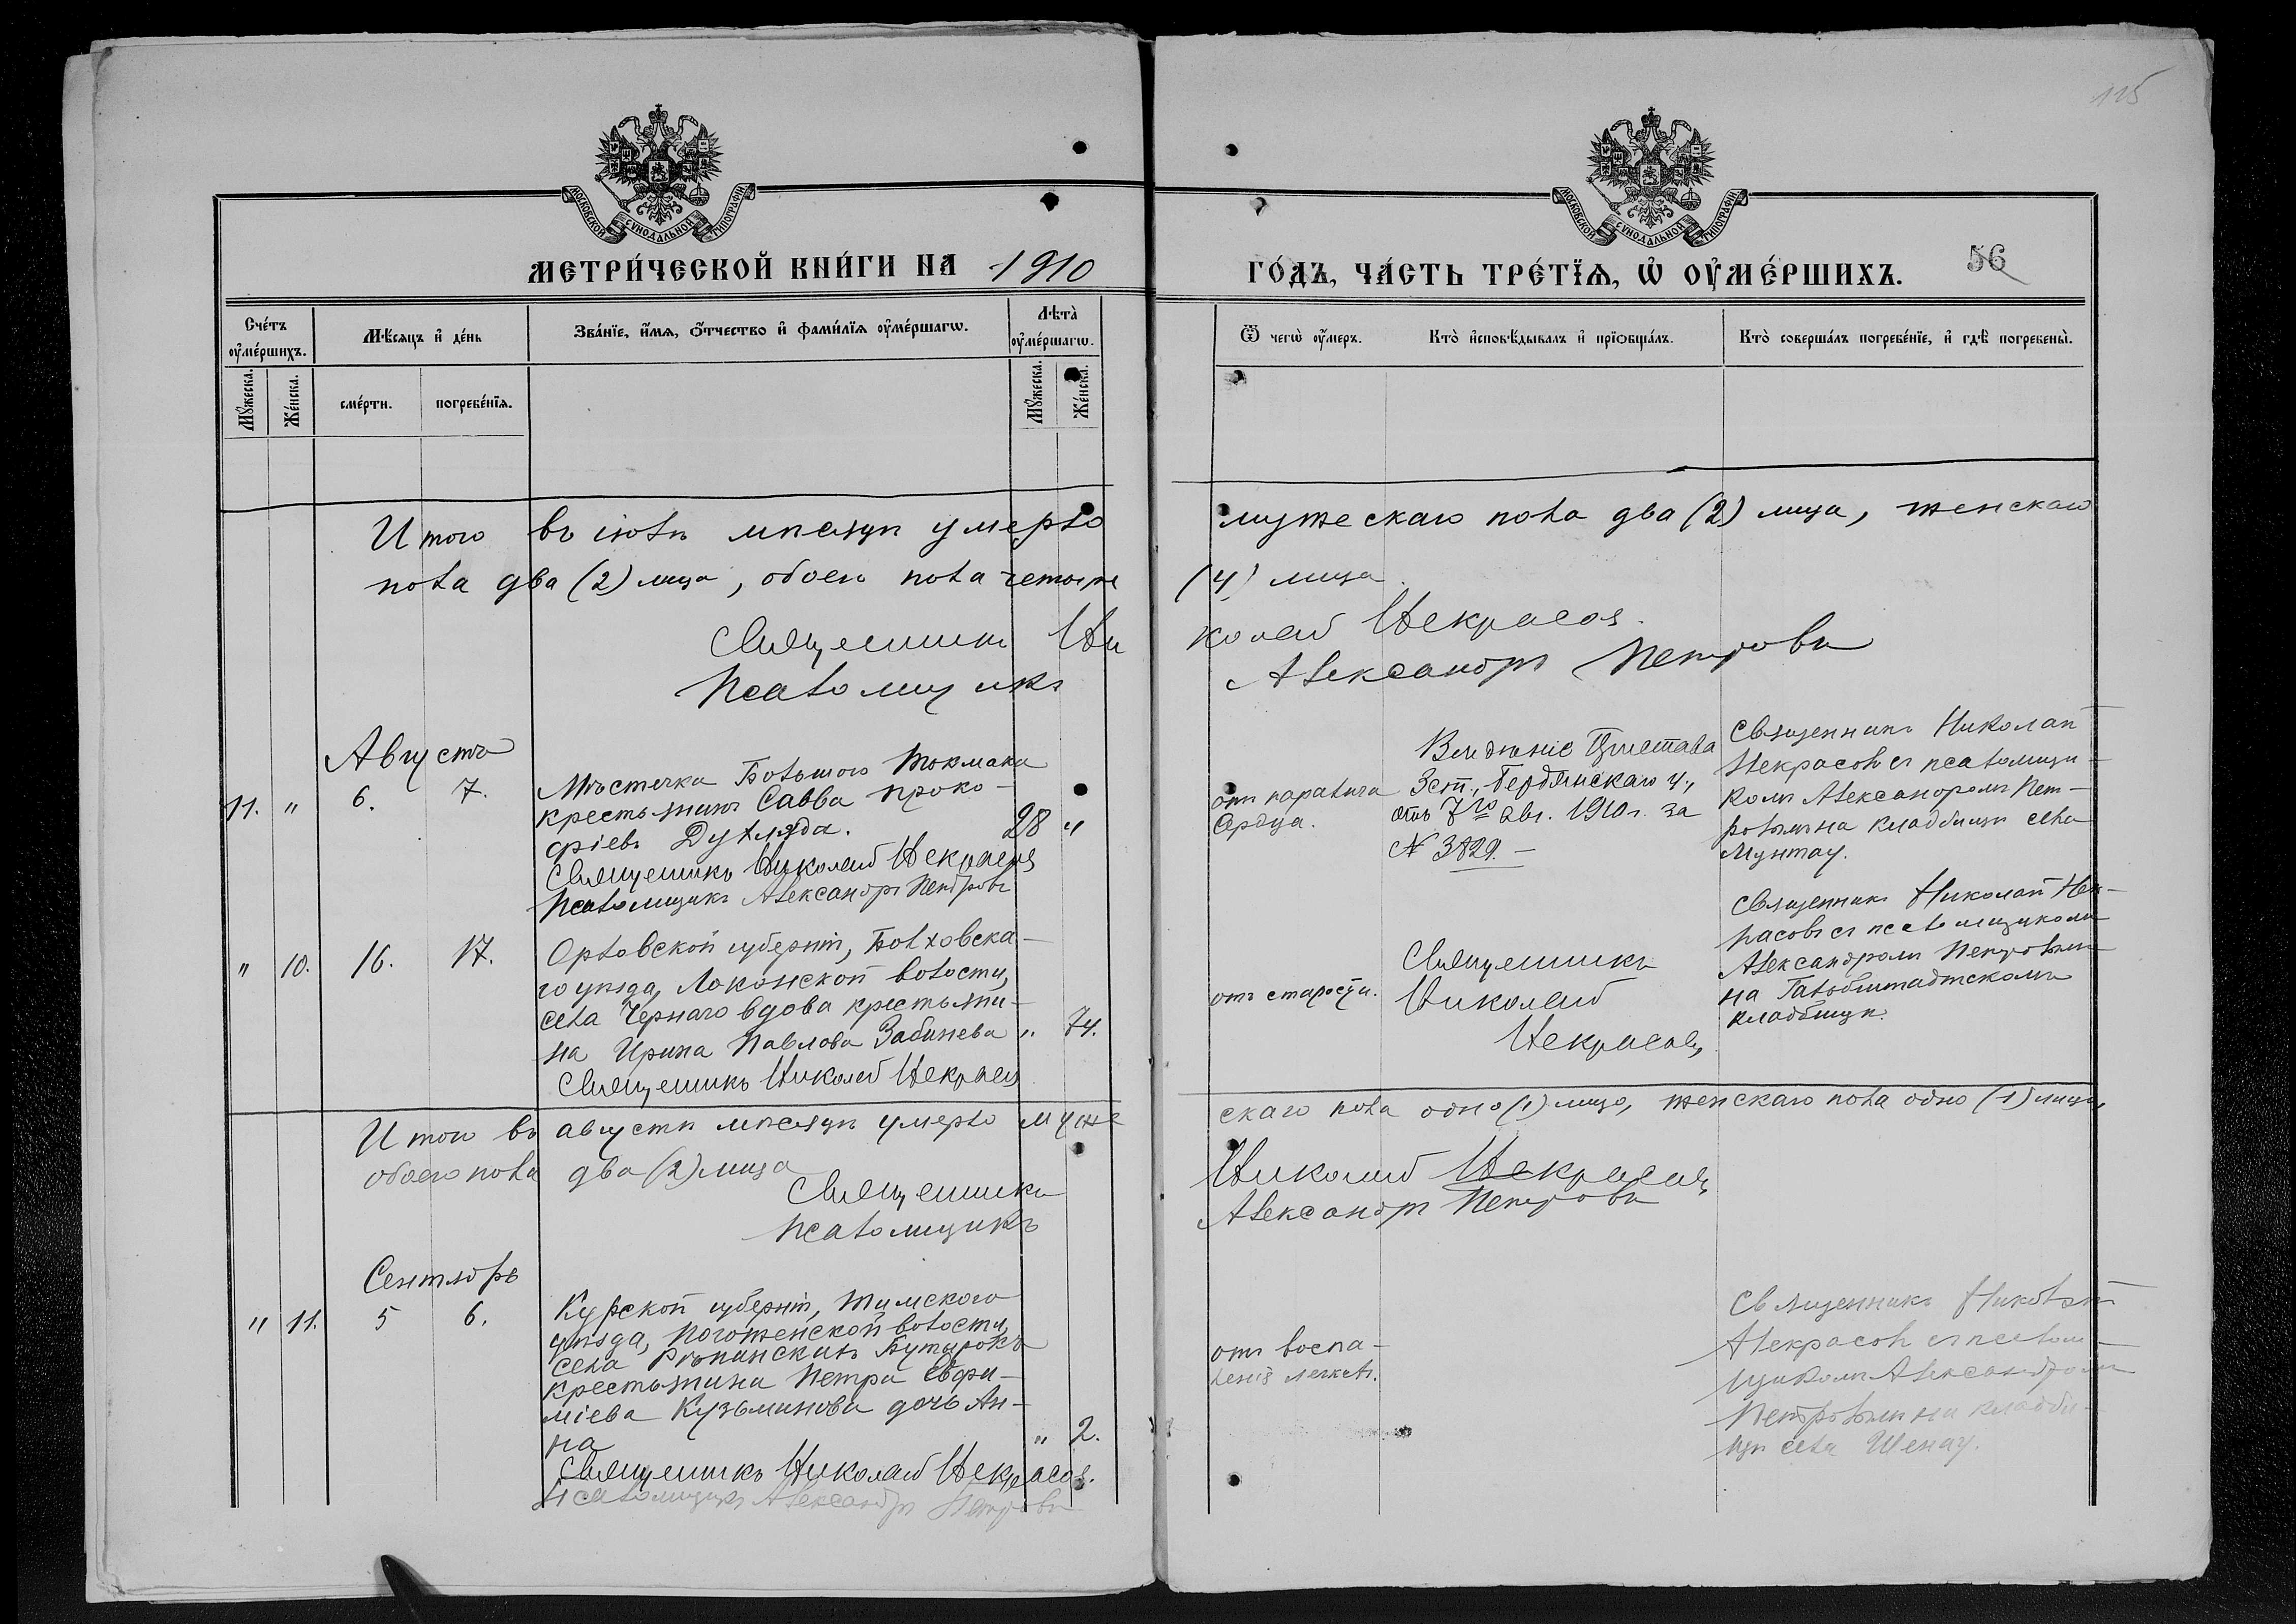 115
МОСКОВСКОЙ СѴНОДАЛЬНОЙ ТИПОГРАФІИ
МОСКОВСКОЙ СѴНОДАЛЬНОЙ ТИПОГРАФІИ
МЕТРИ́ЧЕСКОЙ КНИ́ГИ НА 1910
ГО́ДЪ, ЧА́СТЬ ТРЕ́ТЇѦ, Ѡ҆ ОУ҆МЕ́РШИХЪ.
56
Сче́тъ оу҆ме́ршихъ.
Мѣ́сяцъ и҆ де́нь
Зва́нїе, и҆́мѧ, ѻ҆́тчество и҆ фами́лїѧ оу҆ме́ршагѡ.
Лѣта̀ оу҆ме́ршагѡ.
Мꙋ́жеска.
Же́нска.
сме́рти.
погребе́нїѧ.
Мꙋ́жеска.
Же́нска.
Ѿ чегѡ̀ оу҆́меръ.
Кто̀ и҆сповѣ́дывалъ и҆ прїѻбща́лъ.
Кто̀ соверша́лъ погребе́нїе, и҆ гдѣ̀ погребены̀.
Итого въ іюлѣ мѣсяцѣ умерло
мужескаго пола два (2) лица, женскаго
пола два (2) лица, обоего пола четыре
(4) лица.
Священникъ Ни
колай Некрасовъ.
Псаломщикъ
Александръ Петровъ
Августъ
11. " 6. 7.
Мѣстечка Большого Токмака
крестьянинъ Савва Проко-
фіевъ Дудляда.
28 "
Священникъ Николай Некрасовъ
Псаломщикъ Александръ Петровъ
отъ паралича
сердца.
3 ст., Бердянскаго у.,
отъ 7го авг. 1910 г. за
№ 3829. –
Священникъ Николай
Некрасовъ съ псаломщи-
комъ Александромъ Пет-
ровымъ на кладбищѣ села
Мунтау.
" 10. 16. 17.
Орловской губерніи, Болховска-
го уѣзда, Локонской волости,
села Чернаго вдова крестьян-
ка Ирина Павлова Забинева
" 74.
Священникъ Николай Некрасовъ
отъ старости.
Священникъ
Николай
Некрасовъ
Священникъ Николай Нек-
расовъ съ псаломщикомъ
Александромъ Петровымъ
на Гальбштадтскомъ
кладбищѣ.
Итого въ августѣ мѣсяцѣ умерло муже
скаго пола одно (1) лицо, женскаго пола одно (1) лицо,
обоего пола два (2) лица
Священникъ
Николай Некрасовъ
Псаломщикъ
Александръ Петровъ
Сентябрь
" 11. 5 6.
Курской губерніи, Тимского
уѣзда, Погоженской волости,
села Рѣпинскихъ Бутырокъ
крестьянина Петра Евфи-
міева Кузьминова дочь Ан-
на
" 2.
Священникъ Николай Некрасовъ.
Псаломщикъ Александръ Петровъ
отъ воспа-
ленія легкихъ.
Священникъ Николай
Некрасовъ съ псалом-
щикомъ Александромъ
Петровымъ на кладби-
щѣ села Шенау.